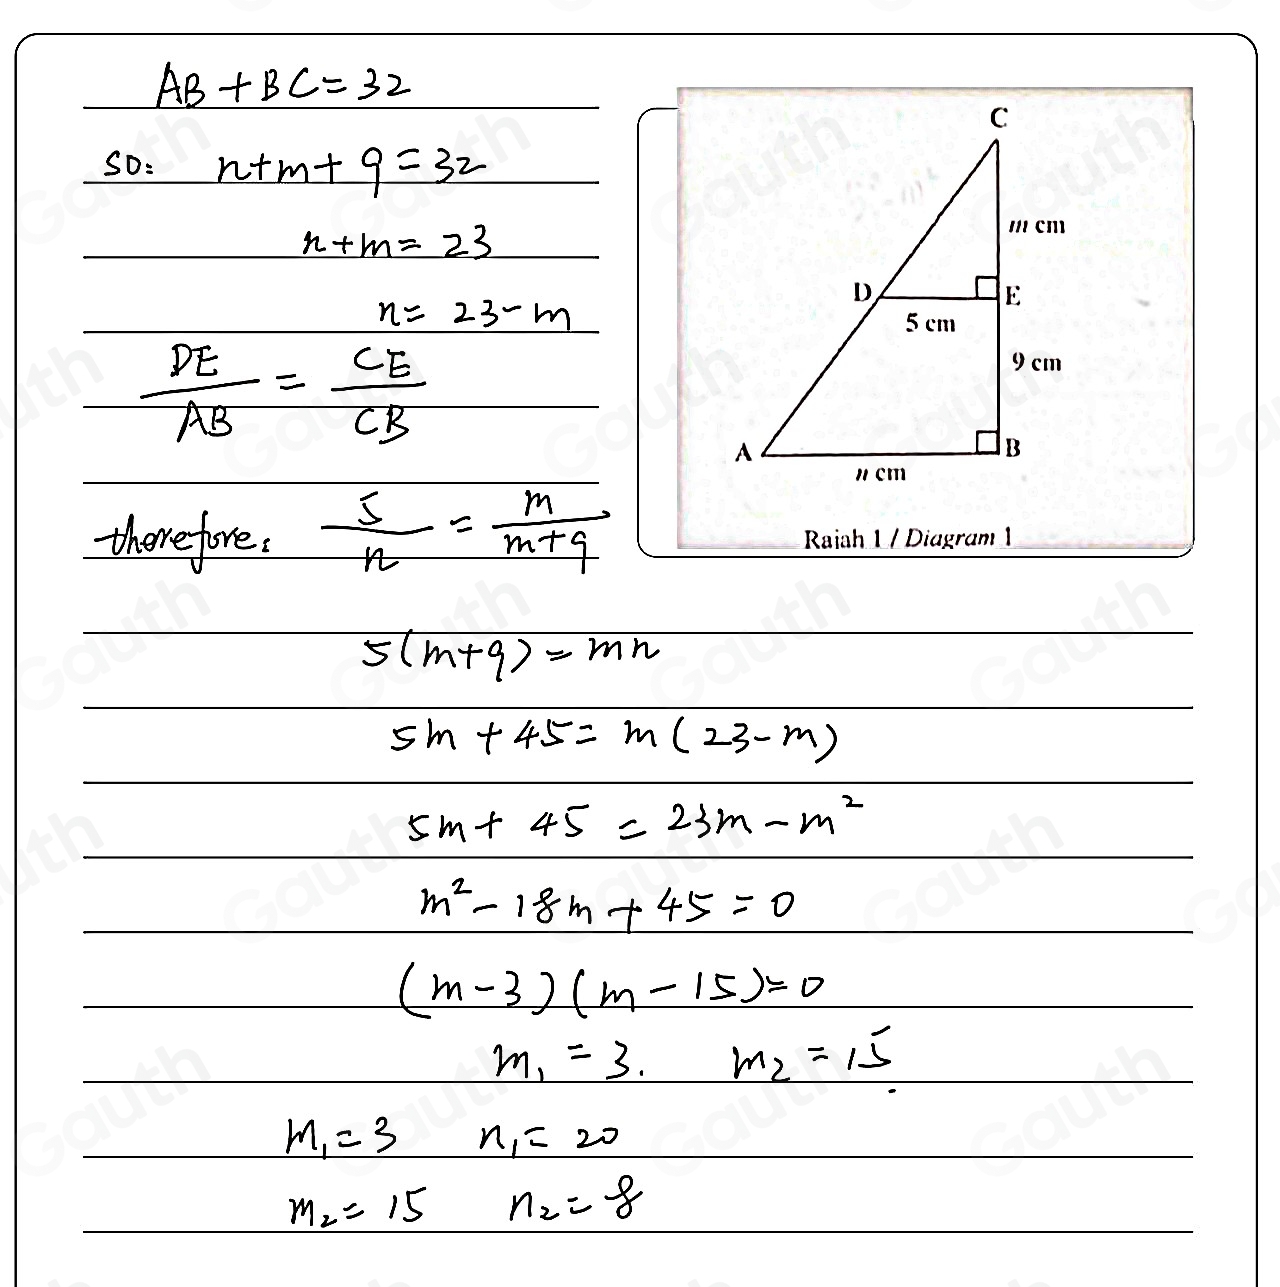 AB + BC = 32
so: n + m + 9 = 32
n + m = 23
n = 23 - m
DE/AB = CE/CB
therefore: 5/n = m/(m+9)
C
m cm
D
E
5 cm
9 cm
A
B
n cm
Rajah 1 / Diagram 1
5(m+9) = mn
5m + 45 = m(23-m)
5m + 45 = 23m - m²
m² - 18m + 45 = 0
(m-3)(m-15) = 0
m₁ = 3. m₂ = 15.
m₁ = 3 n₁ = 20
m₂ = 15 n₂ = 8
Gauth